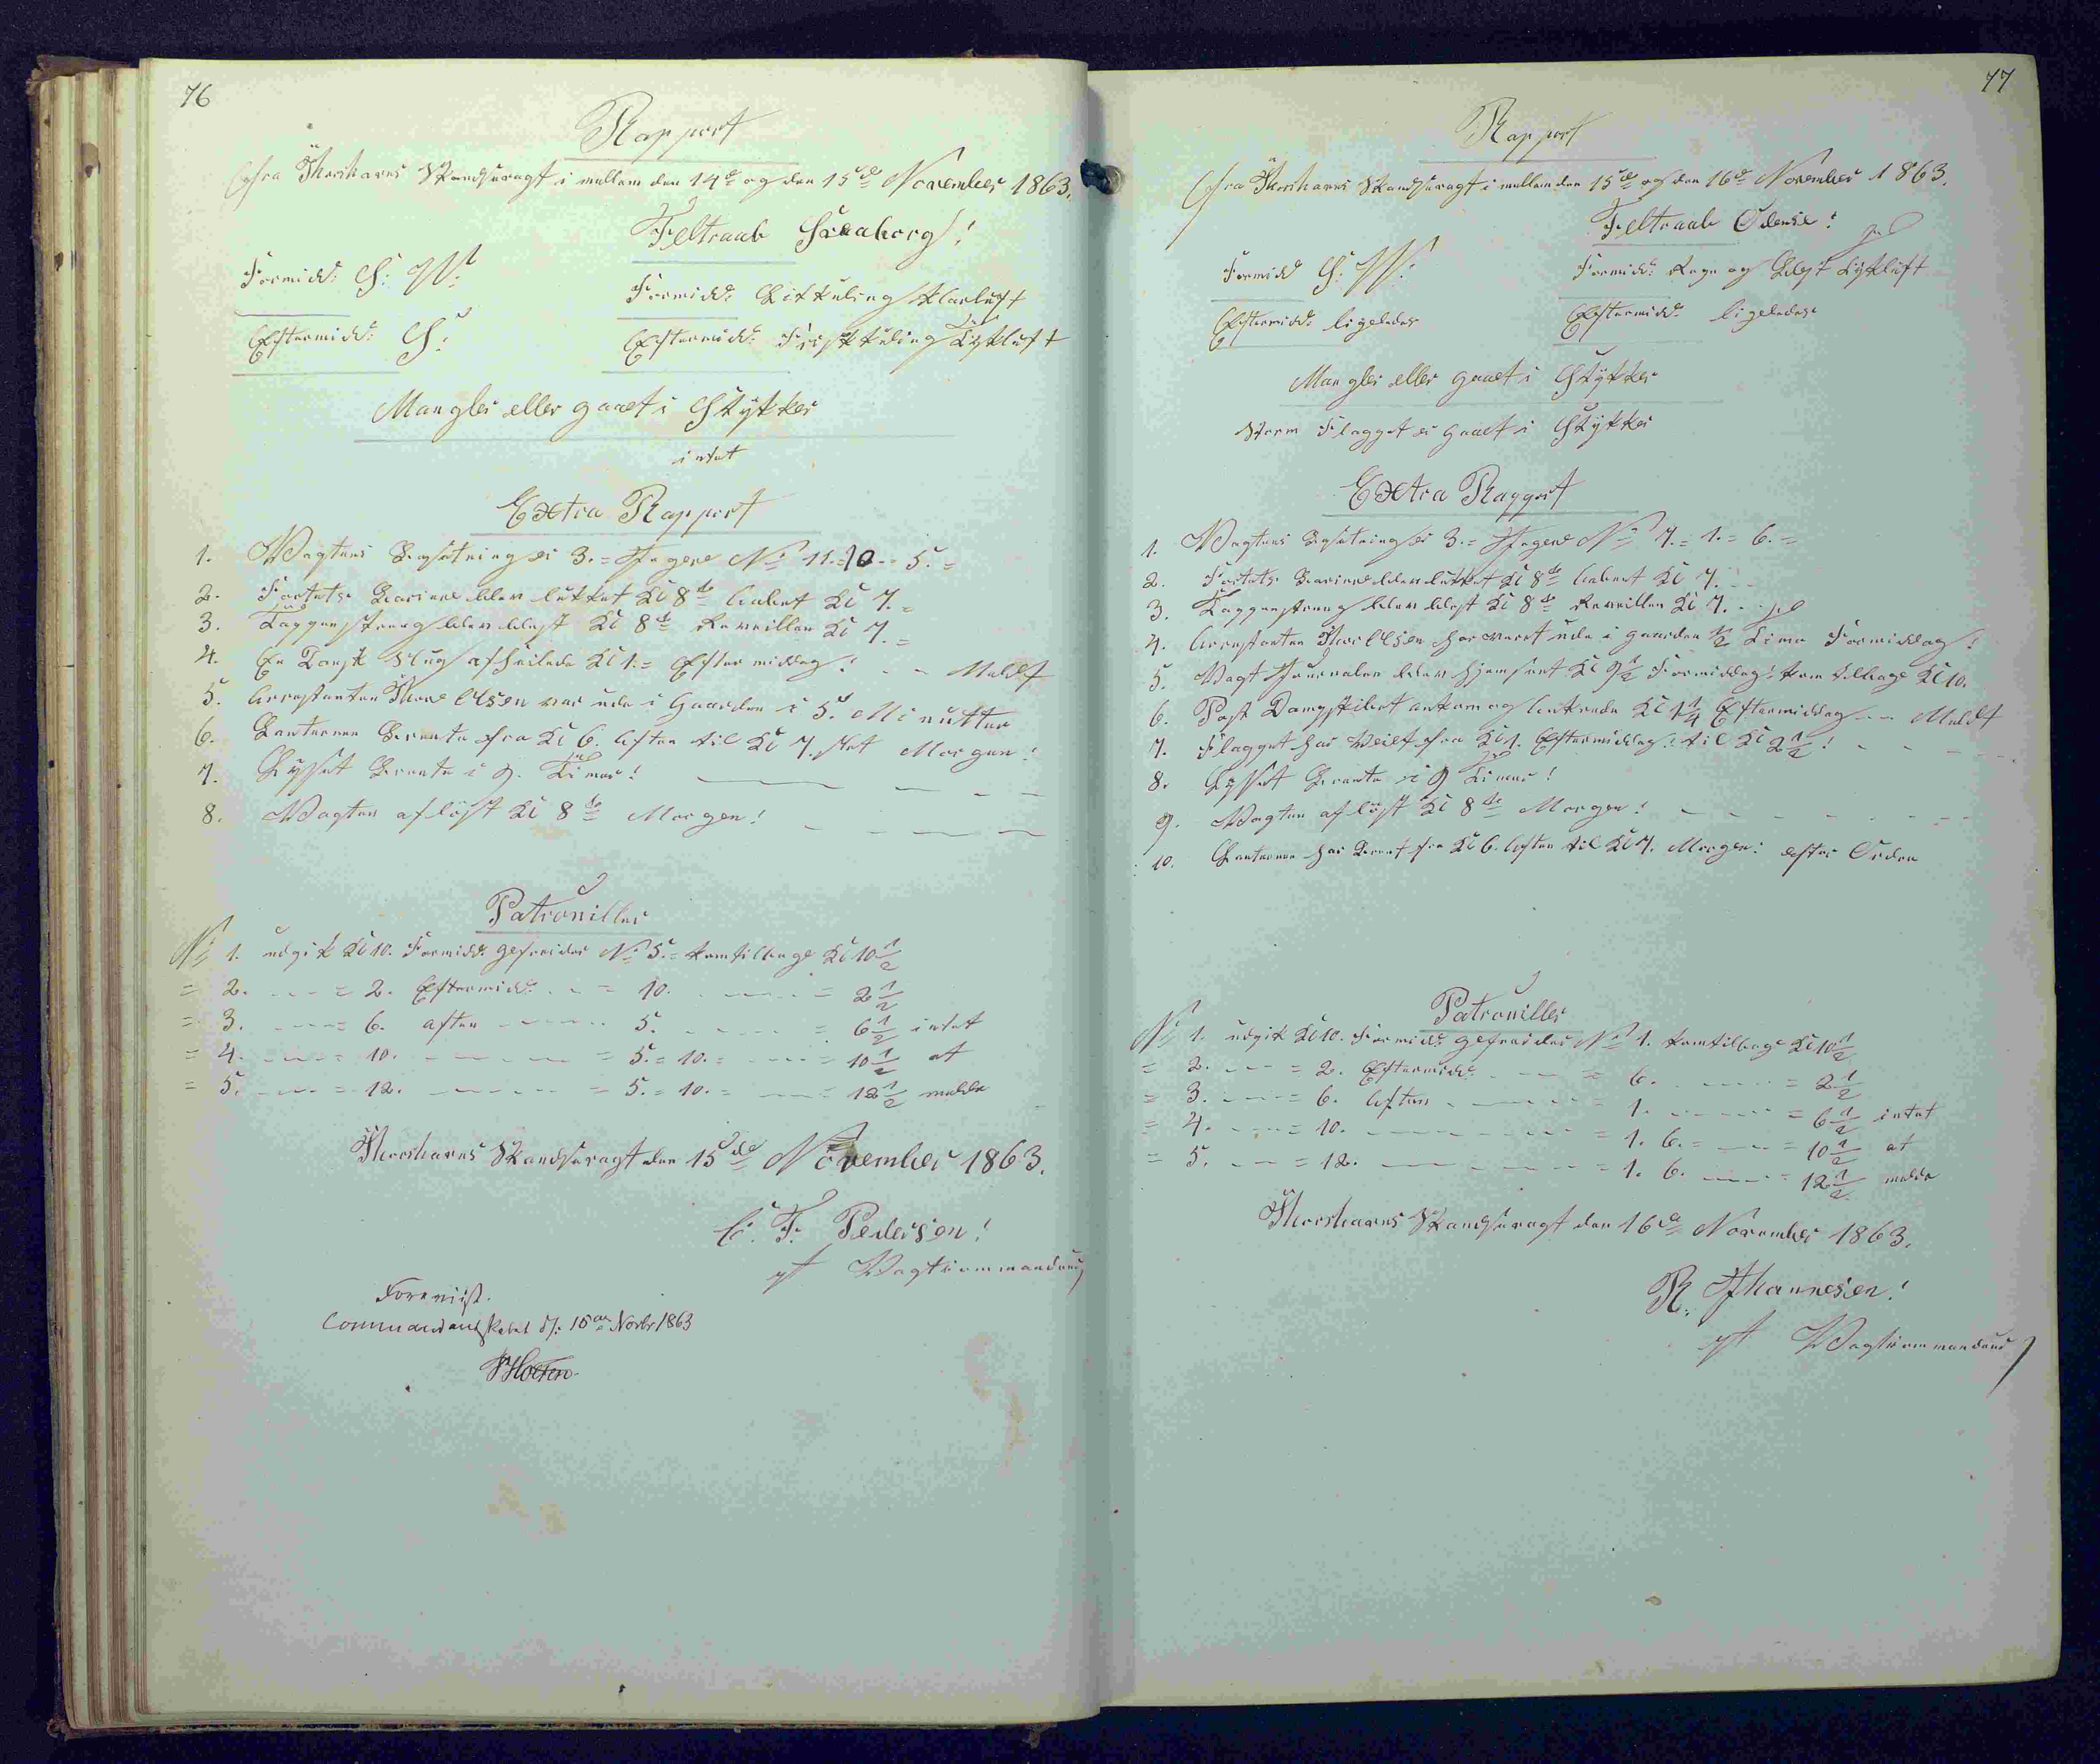 76
Rapport
fra Thorshavns Skandsevagt i mellem den 14de og den 15de November 1863.
Feltraab Faaborg!
Formidd: S: W:
Formidd: Kuling Klarluft
Eftermidd: S:
Eftermidd: Frisk Kuling Tykluft
Mangler eller gaaet i Stykker
intet
Extra Rapport
1. Vagtens Besætning er 3 = Jægere No 11. 10 - 5. =
2. Fortets Barriere blev lukket Kl 8te aabnet Kl 7. =
3. Tappenstreng blev blæst Kl 8te Reveillen Kl 7. =
4. En Dansk Slup afseilede Kl 1. = Eftermiddag! - - Meldt
5. Arrestanten Thore Olsen var ude i Gaarden i 5. Minutter
6. Lanternen Brente fra Kl 6. Aften til Kl 7. Morgen!
7. Lyset Brente i 9. Timer!
8. Vagten afløst Kl 8te Morgen!
Patrouiller
No 1. udgik Kl 10. Formidd: gefreider No 5. = kom tilbage Kl 10 1/2
= 2. - - = 2. Eftermidd: - = 10. - - = 2 1/2
= 3. - - = 6. aften - - 5. - - = 6 1/2 intet
= 4. - - = 10. - - = 5. = 10. = - - = 10 1/2 at
= 5. - - = 12. - - = 5. = 10. = - - = 12 1/2 melde
Thorshavns Skandsevagt den 15de November 1863.
C. F. Pedersen!
Vagtcommandeur
Foreviist.
Commandantskabet d/: 15de Novbr 1863
77
Rapport
fra Thorshavns Skandsevagt i mellem den 15de og den 16de November 1863.
Feltraab Odense!
Formidd S: W:
Formidd: Regn og Blæst Tykluft
Eftermidd: ligeledes
Eftermidd: ligeledes
Mangler eller gaaet i Stykker
Storm Flagget er gaaet i Stykker
Extra Rapport
1. Vagtens Besætning er 3. = Jægere No 7. = 1. = 6. =
2. Fortets Barriere blev lukket Kl 8te aabnet Kl 7.
3. Tappenstreng blev blæst Kl 8te Reveillen Kl 7.
4. Arrestanten Thor Olsen har været ude i gaarden 1/2 Time Formiddag!
5. Vagt Journalen blev hjemsent Kl 9 1/2 Formiddag: kom tilbage Kl 10.
6. Post Dampskibet ankom og ankrede Kl 1 1/4 Eftermiddag - - Meldt
7. Flagget har Veiet fra Kl 1. Eftermiddag: til Kl 2 1/2!
8. Lyset Brente i 9 Timer!
9. Vagten afløst Kl 8te Morgen!
10. Lanternen har Brent fra Kl 6. Aften til Kl 7. Morgen: efter Orden
Patrouiller
No 1. udgik Kl 10. Formidd: gefreider No 1. kom tilbage Kl 10 1/2
= 2. - - = 2. Eftermidd: - - = 6. - - = 2 1/2
= 3. - - = 6. Aften - - 1. - - = 6 1/2 intet
= 4. - - = 10. - - = 1. 6. = - - = 10 1/2 at
= 5. - - = 12. - - = 1. 6. - - = 12 1/2 melde
Thorshavns Skandsevagt den 16de November 1863.
R. Johannesen!
Vagtcommandeur